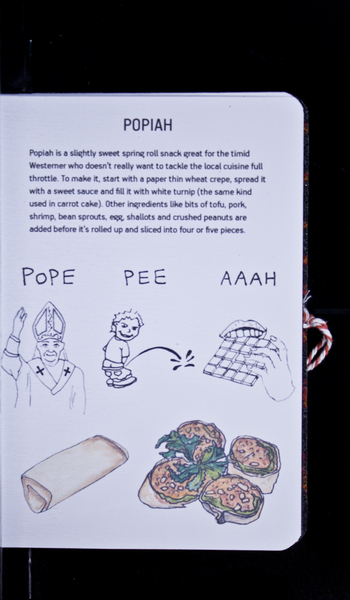 POPIAH
Popiah is a slightly sweet spring roll snack great for the timid
Westerner who doesn't really want to tackle the local cuisine full
throttle. To make it, start with a paper thin wheat crepe, spread it
with a sweet sauce and fill it with white turnip (the same kind
used in carrot cake). Other ingredients like bits of tofu, pork,
shrimp, bean sprouts, egg, shallots and crushed peanuts are
added before it's rolled up and sliced into four or five pieces.
POPE PEE AAAH